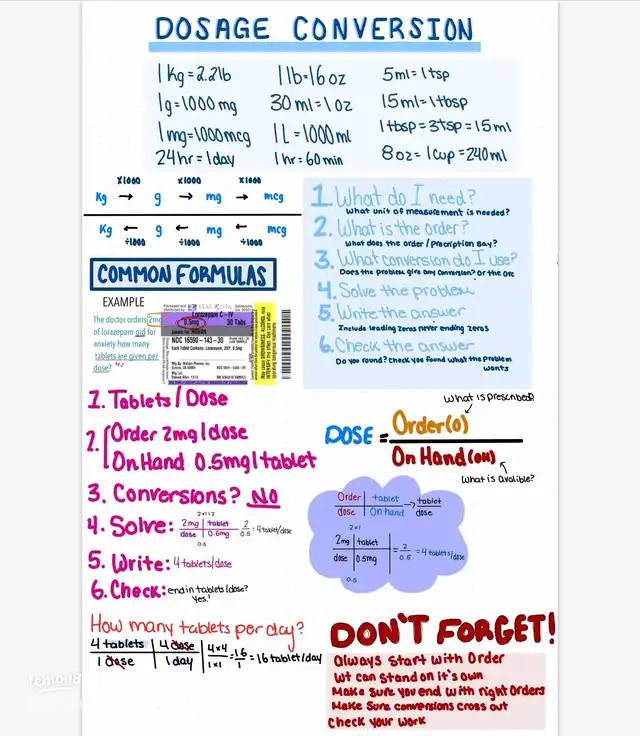 DOSAGE CONVERSION
1 kg = 2.2lb
1 lb = 16 oz
5ml = 1 tsp
1g = 1000 mg
30 ml = 1 oz
15ml = 1 tbsp
1 mg = 1000mcg
1L = 1000 ml
1 tbsp = 3 tsp = 15 ml
24 hr = 1 day
1 hr = 60 min
8 oz = 1 cup = 240 ml
x1000 x1000 x1000
Kg → g → mg → mcg
Kg ← g ← mg ← mcg
÷1000 ÷1000 ÷1000
1. What do I need?
What unit of measurement is needed?
2. What is the order?
What does the order / prescription say?
3. What conversion do I use?
Does the problem give any conversion? Or the
4. Solve the problem
5. Write the answer
Include leading zeros never ending zeros
6. Check the answer
Do you round? Check you found what the problem
wants
COMMON FORMULAS
EXAMPLE
The doctor orders 2mg
of lorazepam qid for
anxiety how many
tablets are given per
dose?
Lorazepam C-IV
0.5mg 30 Tabs
NDC 16590-143-30
Each Tablet Contains: Lorazepam, USP, 0.5mg
1. Tablets / Dose
2. Order 2mg / dose
On Hand 0.5mg / tablet
3. Conversions? NO
4. Solve: 2mg | tablet
dose | 0.5mg
2/0.5 = 4 tablet/dose
5. Write: 4 tablets/dose
6. Check: end in tablets/dose?
Yes!
What is prescribed?
DOSE = Order(O)
On Hand(OH)
What is avalible?
Order | tablet → tablet
dose | On hand dose
2x1
2mg | tablet
dose | 0.5mg
= 2/0.5 = 4 tablets/dose
0.5
How many tablets per day?
4 tablets | 4 dose | 4x4 = 16 = 16 tablet/day
1 dose | 1 day | 1x1 1
DON'T FORGET!
Always start with Order
Wt can stand on it's own
Make sure you end with right Orders
Make sure conversions cross out
Check your work
lemon8